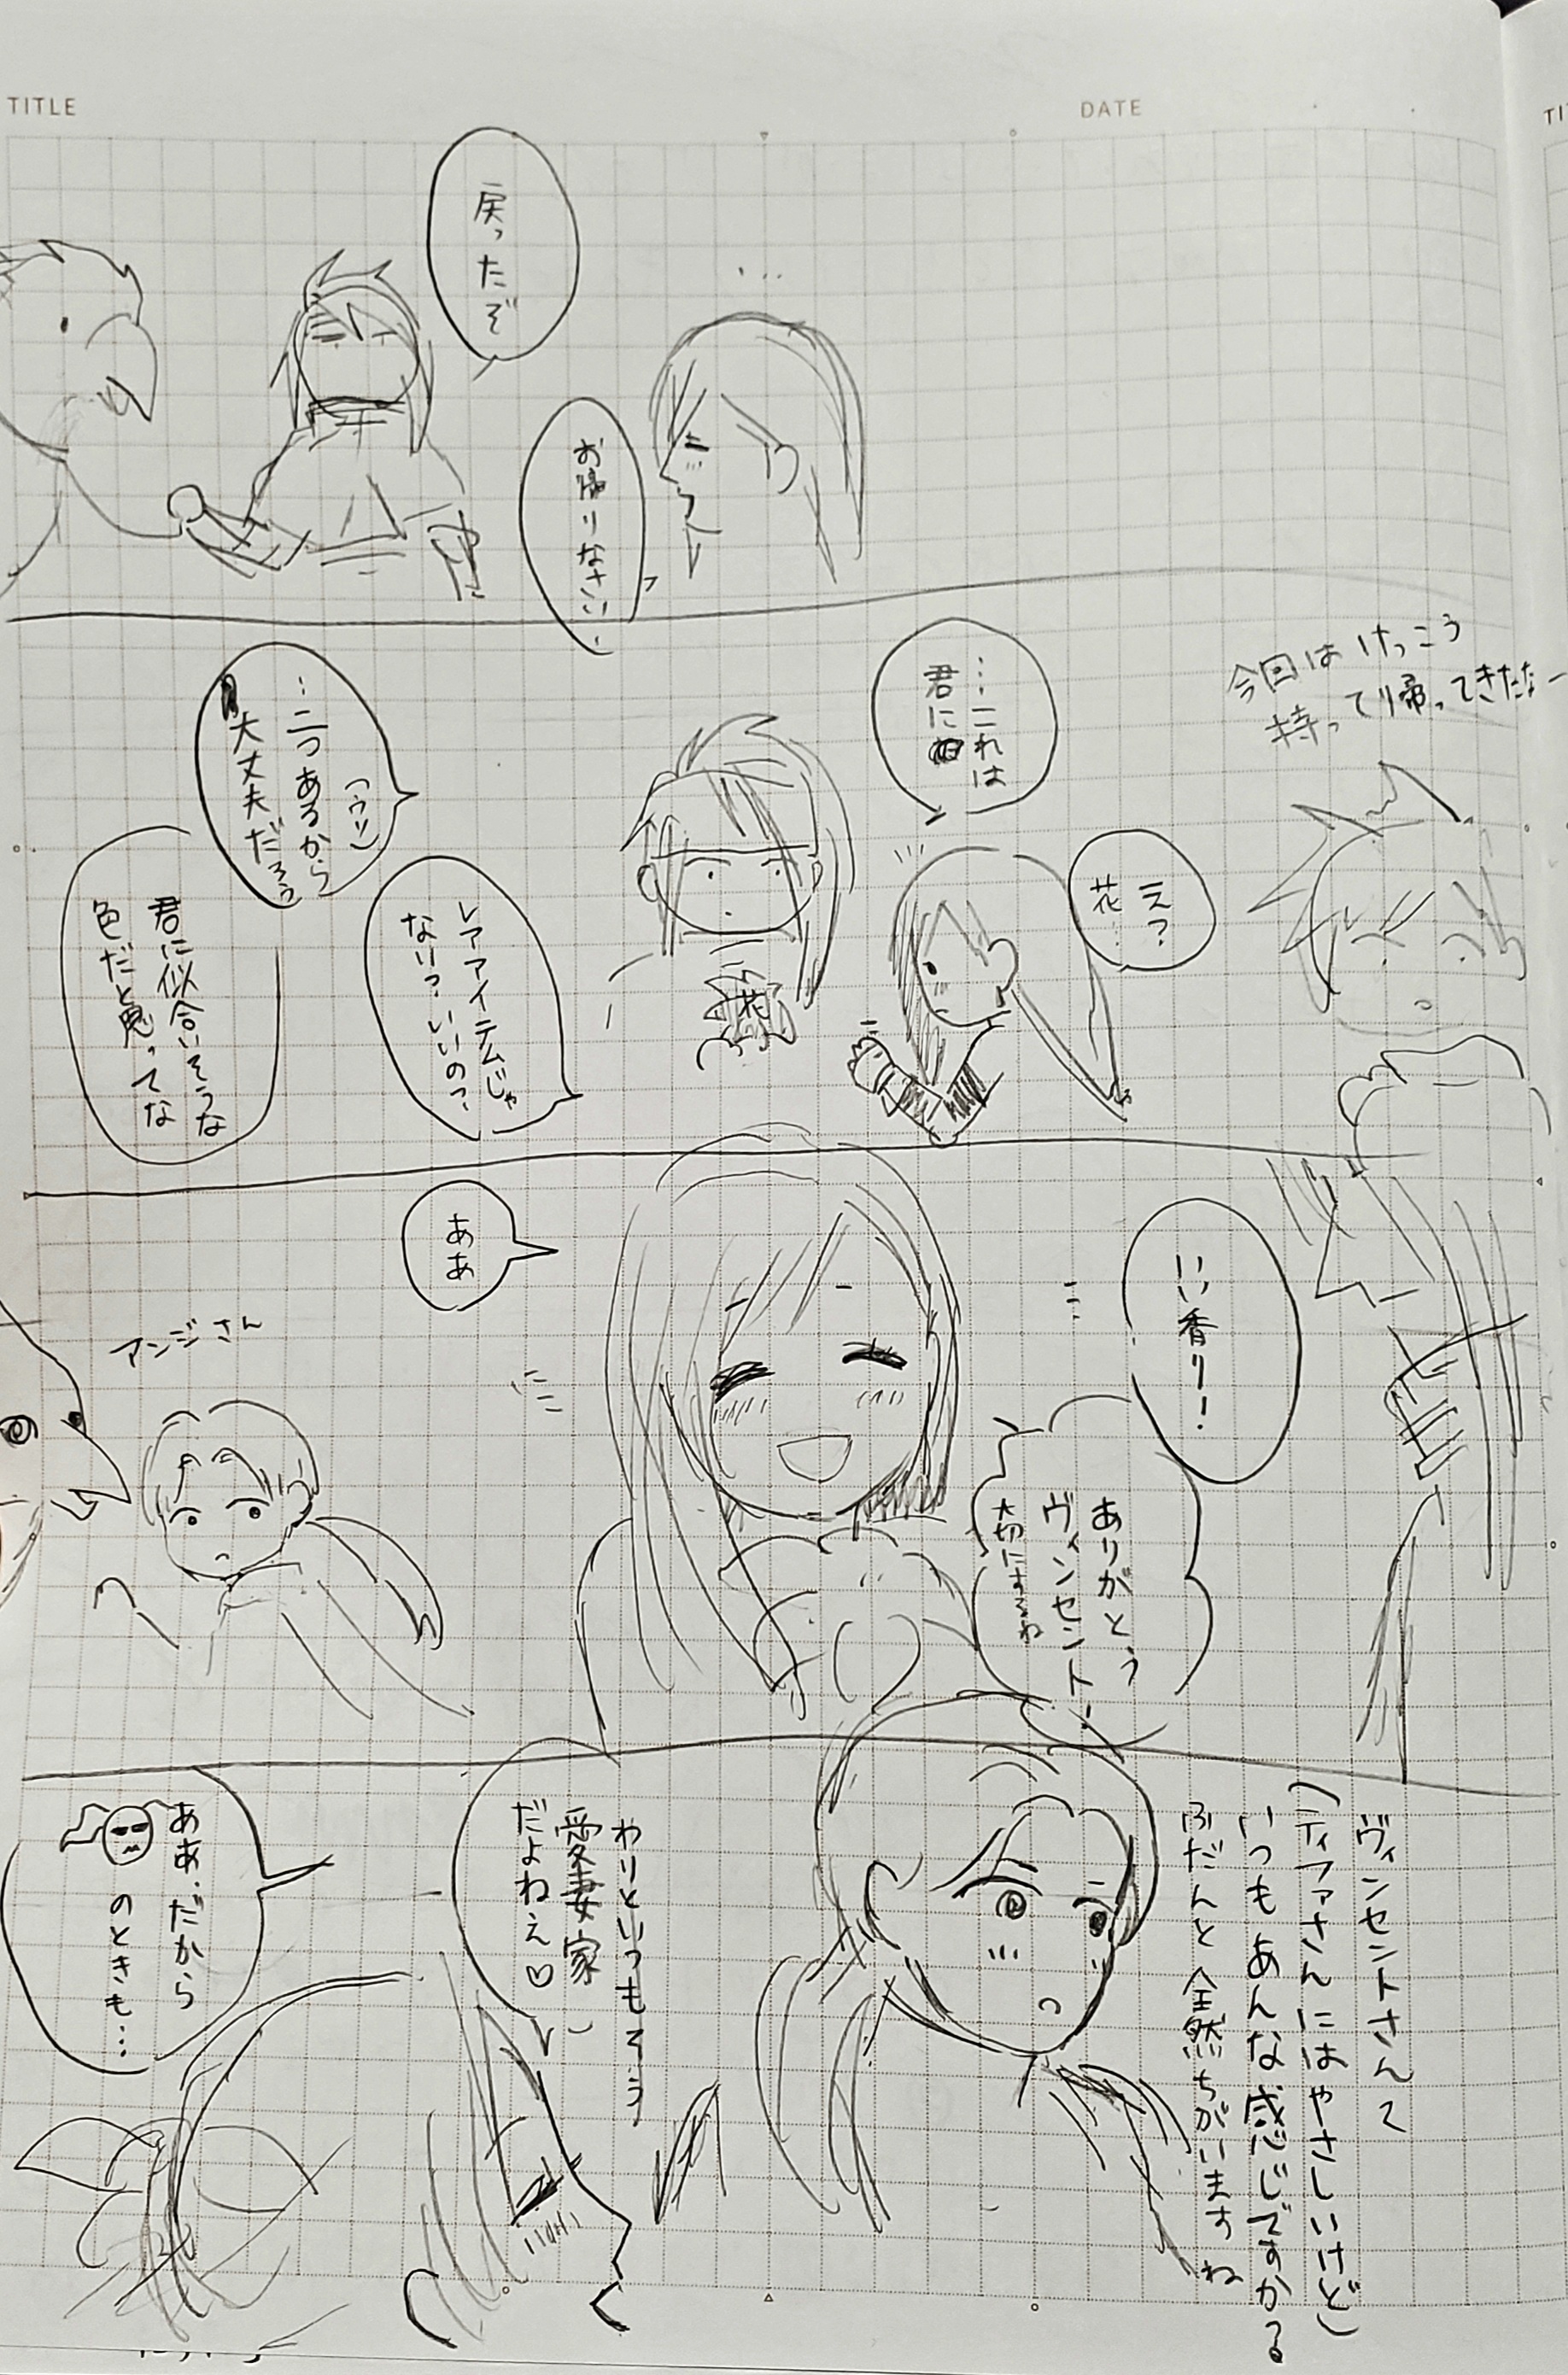 TITLE
DATE
戻ったぞ
お帰りなさい、
今回はけっこう
持ってり帰ってきたなー
…これは
君に
え？
花…
花
レアアイテムじゃ
ない？いいの？
…二つあるから
大丈夫だろう
君に似合いそうな
色だと思ってな
いい香り！
ありがとう
ヴィンセント！
大切にするね
ああ
アンジさん
ヴィンセントさんて
（ティファさんにはやさしいけど）
いつもあんな感じですか
ふだんと全然ちがいますね
わりといつもそう
愛妻家
だよねぇ♡
ああ、だから
のときも…